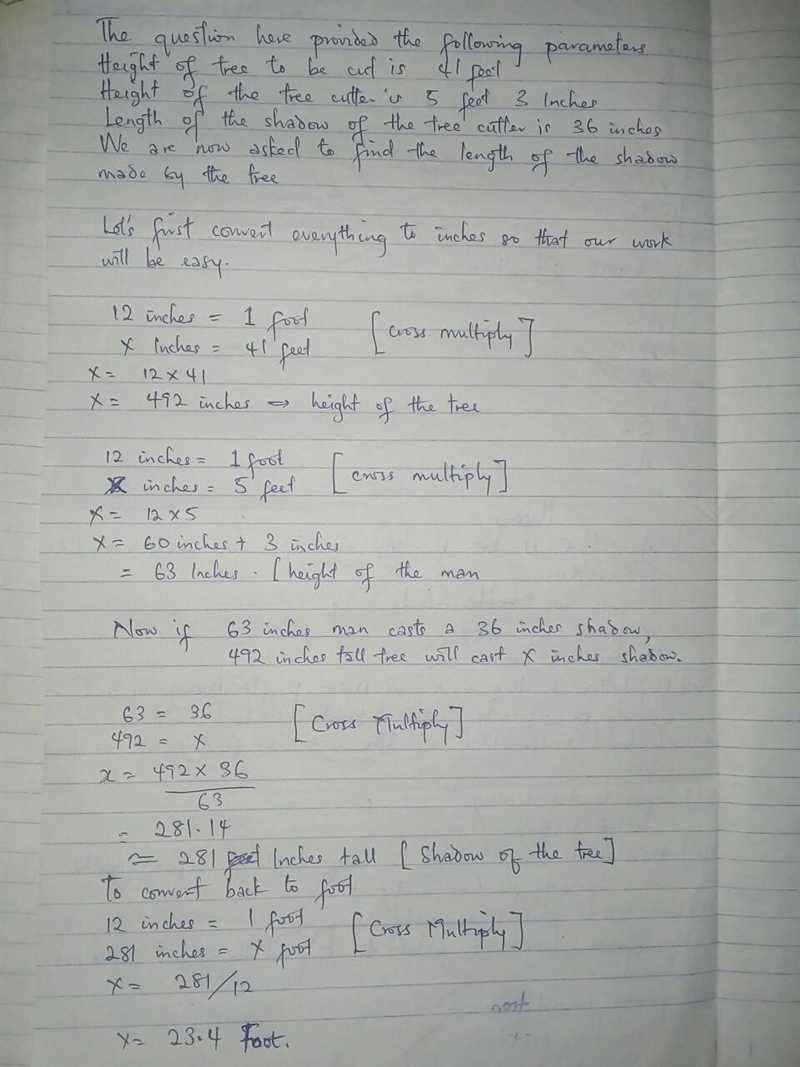 The question here provided the following parameters
Height of tree to be cut is 41 feet
Height of the tree cutter is 5 feet 3 Inches
Length of the shadow of the tree cutter is 36 inches
We are now asked to find the length of the shadow
made by the tree
Let's first convert everything to inches so that our work
will be easy.
12 inches = 1 foot [Cross multiply]
x Inches = 41 feet
x = 12 x 41
x = 492 inches ⇒ height of the tree
12 inches = 1 foot [cross multiply]
x inches = 5 feet
x = 12 x 5
x = 60 inches + 3 inches
= 63 Inches. [height of the man
Now if 63 inches man casts a 36 inches shadow,
492 inches tall tree will cast x inches shadow.
63 = 36 [Cross Multiply]
492 = x
x = 492 x 36
63
= 281.14
≃ 281 Inches tall [Shadow of the tree]
To convert back to foot
12 inches = 1 foot [Cross Multiply]
281 inches = x foot
x = 281/12
x = 23.4 Foot.